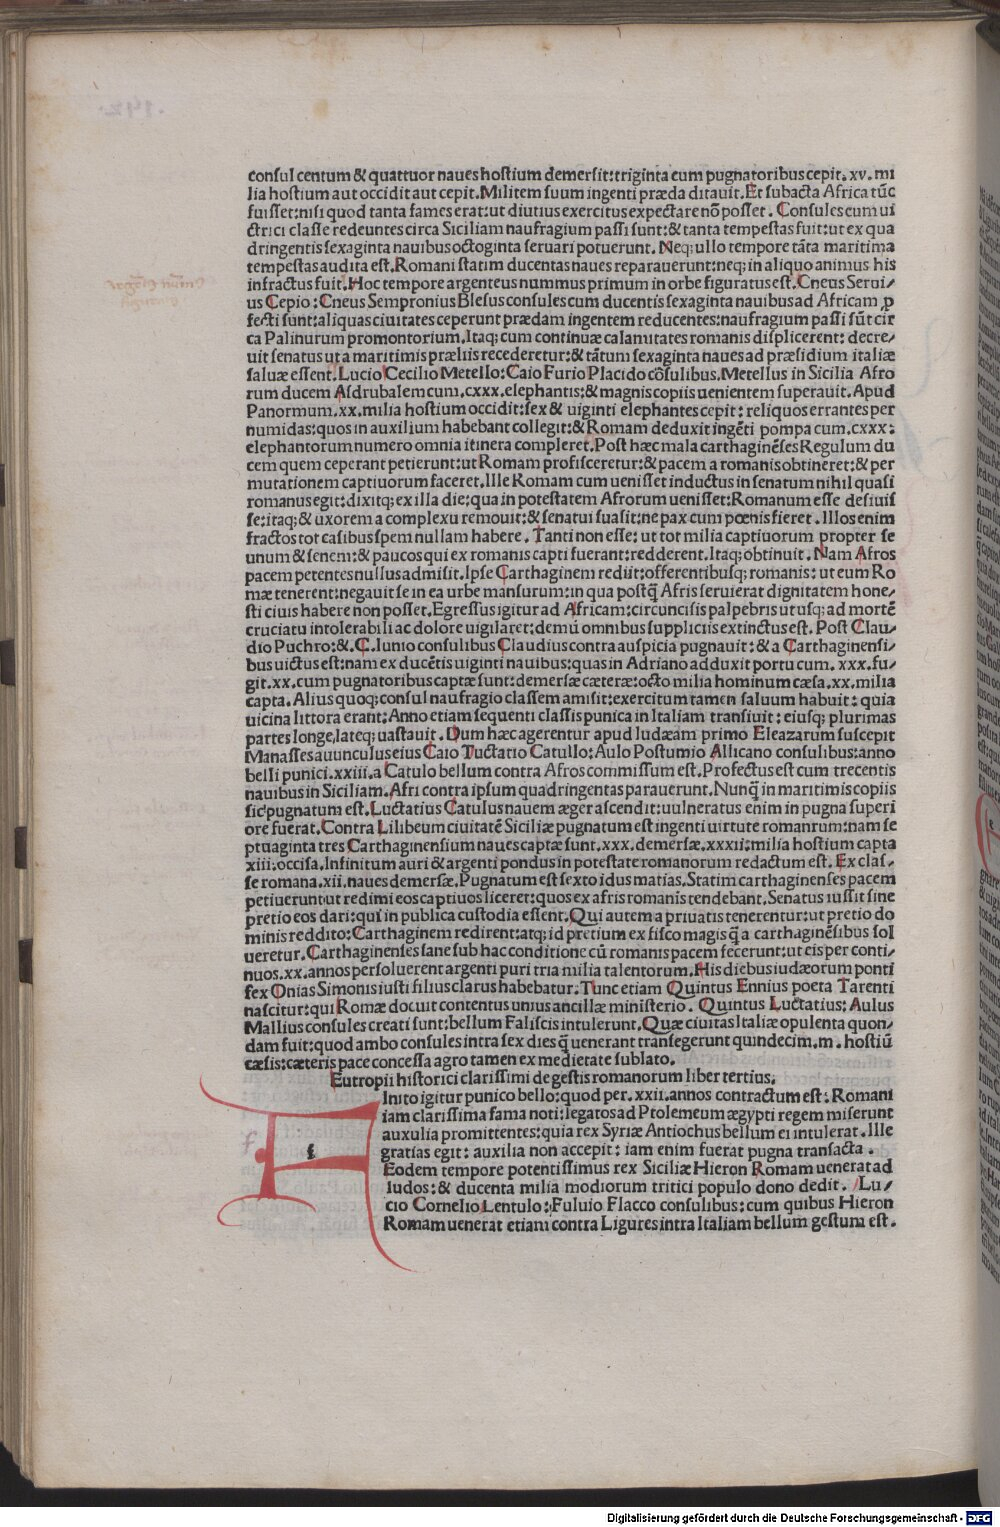 conſul centum & quattuor naues hoſtium demerſit: triginta cum pugnatoribus cepit. xv. mi
lia hoſtium aut occidit aut cepit. Militem ſuum ingenti præda ditauit. Et ſubacta Africa tūc
fuiſſet: niſi quod tanta fames erat: ut diutius exercitus expectare nō poſſet. Conſules cum ui
ctrici claſſe redeuntes circa Siciliam naufragium paſſi ſunt: & tanta tempeſtas fuit: ut ex qua
dringentis ſexaginta nauibus octoginta ſeruari potuerunt. Neq; ullo tempore tāta maritima
tempeſtas audita eſt. Romani ſtatim ducentas naues reparauerunt: neq; in aliquo animus his
infractus fuit. Hoc tempore argenteus nummus primum in orbe figuratus eſt. Cneus Serui⸗
us Cepio: Cneus Sempronius Bleſus conſules cum ducentis ſexaginta nauibus ad Africam ꝓ
fecti ſunt: aliquas ciuitates ceperunt prædam ingentem reducentes: naufragium paſſi ſūt cir
ca Palinurum promontorium. Itaq; cum continuæ calamitates romanis diſplicerent: decre⸗
uit ſenatus ut a maritimis præliis recederetur: & tātum ſexaginta naues ad præſidium italiæ
ſaluæ eſſent. Lucio Cecilio Metello: Caio Furio Placido cōſulibus. Metellus in Sicilia Afro
rum ducem Aſdrubalem cum. cxxx. elephantis: & magnis copiis uenientem ſuperauit. Apud
Panormum. xx. milia hoſtium occidit: ſex & uiginti elephantes cepit: reliquos errantes per
numidas: quos in auxilium habebant collegit: & Romam deduxit ingēti pompa cum. cxxx:
elephantorum numero omnia itinera compleret. Poſt hæc mala carthaginēſes Regulum du
cem quem ceperant petierunt: ut Romam profiſceretur: & pacem a romanis obtineret: & per
mutationem captiuorum faceret. Ille Romam cum ueniſſet inductus in ſenatum nihil quaſi
romanus egit: dixitq; ex illa die: qua in poteſtatem Afrorum ueniſſet: Romanum eſſe deſiuiſ
ſe: itaq; & uxorem a complexu remouit: & ſenatui ſuaſit: ne pax cum pœnis fieret. Illos enim
fractos tot caſibus ſpem nullam habere. Tanti non eſſe: ut tot milia captiuorum propter ſe
unum & ſenem: & paucos qui ex romanis capti fuerant: redderent. Itaq; obtinuit. Nam Afros
pacem petentes nullus admiſit. Ipſe Carthaginem rediit: offerentibuſq; romanis: ut eum Ro
mæ tenerent: negauit ſe in ea urbe manſurum: in qua poſtq̄ Afris ſeruierat dignitatem hone⸗
ſti ciuis habere non poſſet. Egreſſus igitur ad Africam: circunciſis palpebris utuſq; ad mortē
cruciatu intolerabili ac dolore uigilaret: demū omnibus ſuppliciis extinctus eſt. Poſt Clau⸗
dio Puchro: & C. Iunio conſulibus Claudius contra auſpicia pugnauit: & a Carthaginenſi⸗
bus uictus eſt: nam ex ducētis uiginti nauibus: quas in Adriano adduxit portu cum. xxx. fu⸗
git. xx. cum pugnatoribus captæ ſunt: demerſæ cæteræ: octo milia hominum cæſa. xx. milia
capta. Alius quoq; conſul naufragio claſſem amiſit: exercitum tamen ſaluum habuit: quia
uicina littora erant: Anno etiam ſequenti claſſis punica in Italiam tranſiuit: eiuſq; plurimas
partes longe, lateq; uaſtauit. Dum hæc agerentur apud Iudæam primo Eleazarum ſuſcepit
Manaſſes auunculus eius Caio Tuctatio Catullo: Aulo Poſtumio Allicano conſulibus: anno
belli punici. xxiii. a Catulo bellum contra Afros commiſſum eſt. Profectus eſt cum trecentis
nauibus in Siciliam. Afri contra ipſum quadringentas parauerunt. Nunq̄ in maritimis copiis
ſic pugnatum eſt. Luctatius Catulus nauem æger aſcendit: uulneratus enim in pugna ſuperi
ore fuerat. Contra Lilibeum ciuitatē Siciliæ pugnatum eſt ingenti uirtute romanrum: nam ſe
ptuaginta tres Carthaginenſium naues captæ ſunt. xxx. demerſæ. xxxii: milia hoſtium capta
xiii: occiſa. Infinitum auri & argenti pondus in poteſtate romanorum redactum eſt. Ex claſ⸗
ſe romana. xii. naues demerſæ. Pugnatum eſt ſexto idus matias. Statim carthaginenſes pacem
petiuerunt ut redimi eos captiuos liceret: quos ex afris romanis tendebant. Senatus iuſſit ſine
pretio eos dari: qui in publica cuſtodia eſſent. Qui autem a priuatis tenerentur: ut pretio do
minis reddito: Carthaginem redirent: atq; id pretium ex fiſco magis q̄ a carthaginēſibus ſol
ueretur. Carthaginenſes ſane ſub hac conditione cū romanis pacem fecerunt: ut eis per conti⸗
nuos. xx. annos perſoluerent argenti puri tria milia talentorum. His diebus iudæorum ponti
fex Onias Simonis iuſti filius clarus habebatur. Tunc etiam Quintus Ennius poeta Tarenti
naſcitur: qui Romæ docuit contentus unius ancillæ miniſterio. Quintus Luctatius: Aulus
Mallius conſules creati ſunt: bellum Faliſcis intulerunt. Quæ ciuitas Italiæ opulenta quon⸗
dam fuit: quod ambo conſules intra ſex dies q̄ uenerant tranſegerunt quindecim. m. hoſtiū
cæſis: cæteris pace conceſſa agro tamen ex medietate ſublato.
Eutropii hiſtorici clariſſimi de geſtis romanorum liber tertius.
f Inito igitur punico bello: quod per. xxii. annos contractum eſt: Romani
iam clariſſima fama noti: legatos ad Ptolemeum ægypti regem miſerunt
auxulia promittentes: quia rex Syriæ Antiochus bellum ei intulerat. Ille
gratias egit: auxilia non accepit: iam enim fuerat pugna tranſacta.
Eodem tempore potentiſſimus rex Siciliæ Hieron Romam uenerat ad
ludos: & ducenta milia modiorum tritici populo dono dedit. Lu⸗
cio Cornelio Lentulo: Fuluio Flacco conſulibus: cum quibus Hieron
Romam uenerat etiam contra Ligures intra Italiam bellum geſtum eſt.
Digitalisierung gefördert durch die Deutsche Forschungsgemeinschaft - DFG